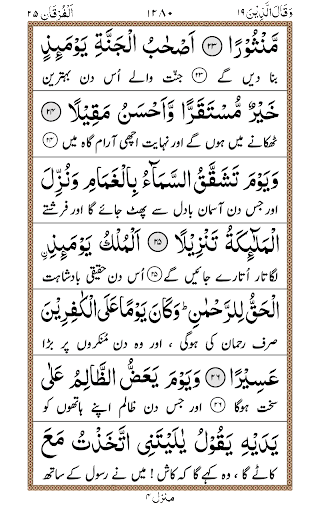 وَقَالَ الَّذِيْنَ ١٩ ١٢٨٠ اَلْفُرْقَان ٢٥
مَّنْثُوْرًا ﴿٢٣﴾ اَصْحٰبُ الْجَنَّةِ يَوْمَئِذٍ
بنا دیں گے ﴿٢٣﴾ جنّت والے اُس دن بہترین
خَيْرٌ مُّسْتَقَرًّا وَّاَحْسَنُ مَقِيْلًا ﴿٢٤﴾
ٹھکانے میں ہوں گے اور نہایت اچھی آرام گاہ میں ﴿٢٤﴾
وَيَوْمَ تَشَقَّقُ السَّمَآءُ بِالْغَمَامِ وَنُزِّلَ
اور جس دن آسمان بادل سے پھٹ جائے گا اور فرشتے
الْمَلٰٓئِكَةُ تَنْزِيْلًا ﴿٢٥﴾ اَلْمُلْكُ يَوْمَئِذِ
لگا تار اُتارے جائیں گے ﴿٢٥﴾ اُس دن حقیقی بادشاہت
الْحَقُّ لِلرَّحْمٰنِ ؕ وَكَانَ يَوْمًا عَلَى الْكٰفِرِيْنَ
صرف رحمان کی ہوگی ، اور وہ دن مُنکروں پر بڑا
عَسِيْرًا ﴿٢٦﴾ وَيَوْمَ يَعَضُّ الظَّالِمُ عَلٰى
سخت ہوگا ﴿٢٦﴾ اور جس دن ظالم اپنے ہاتھوں کو
يَدَيْهِ يَقُوْلُ يٰلَيْتَنِى اتَّخَذْتُ مَعَ
کاٹے گا ، وہ کہے گا کہ کاش ! میں نے رسول کے ساتھ
منزل ٤